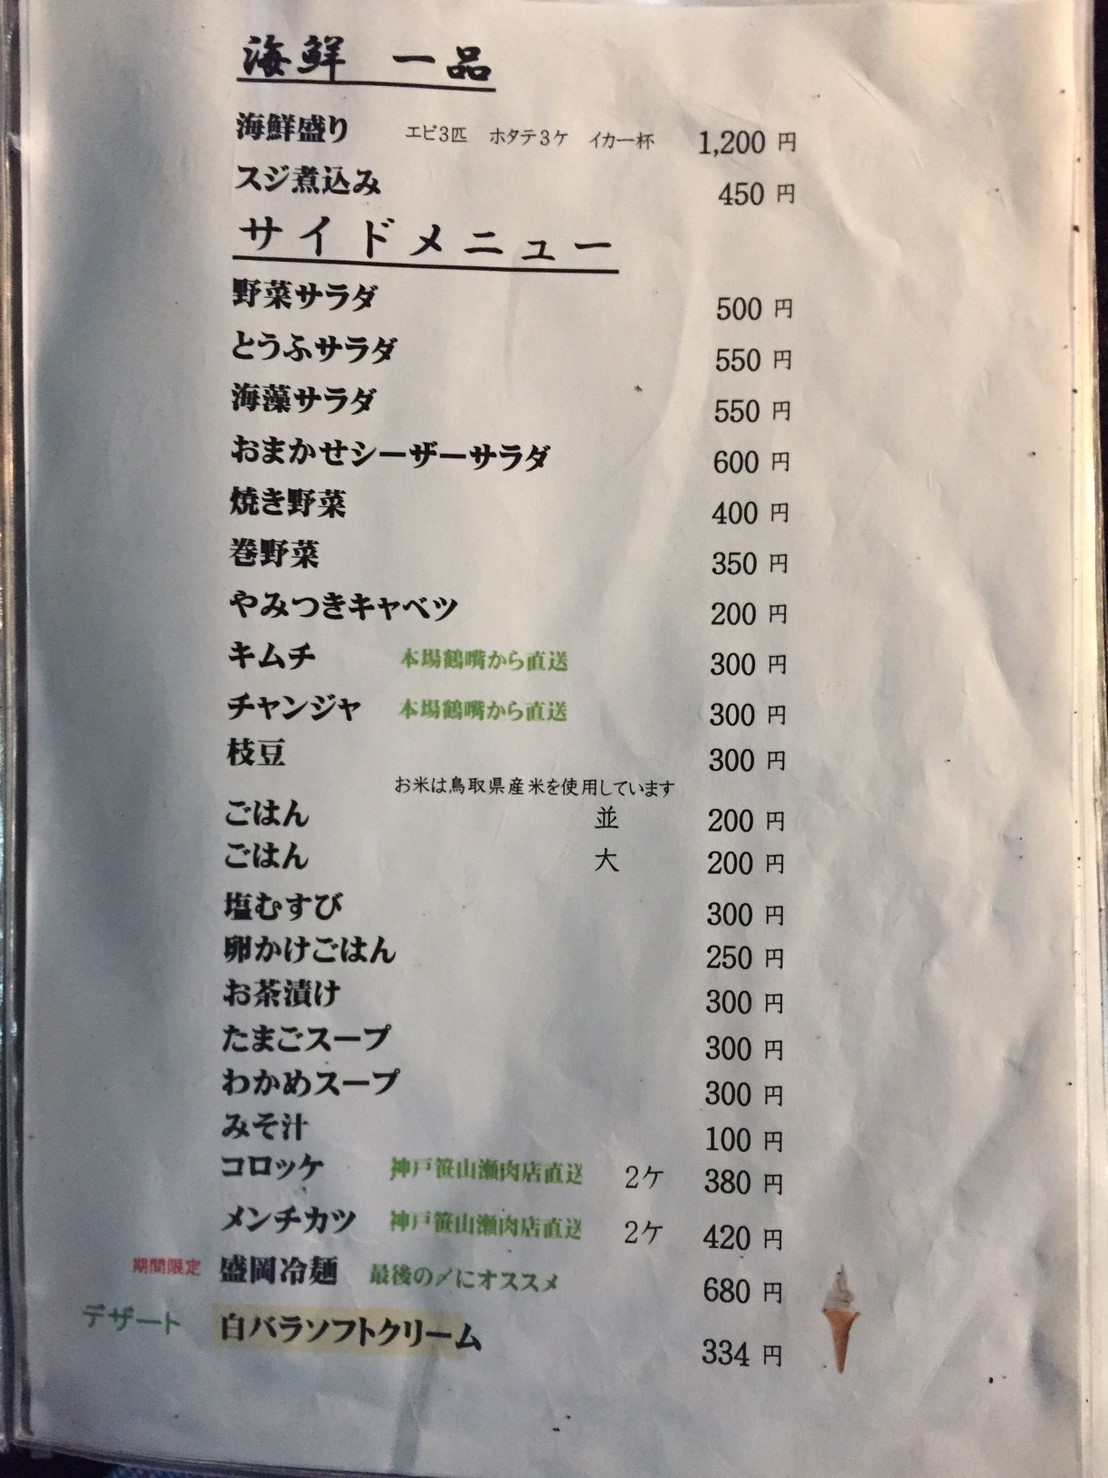 海鮮 一品
海鮮盛り エビ3匹 ホタテ3ケ イカ一杯 1,200 円
スジ煮込み 450 円
サイドメニュー
野菜サラダ 500 円
とうふサラダ 550 円
海藻サラダ 550 円
おまかせシーザーサラダ 600 円
焼き野菜 400 円
巻野菜 350 円
やみつきキャベツ 200 円
キムチ 本場鶴嘴から直送 300 円
チャンジャ 本場鶴嘴から直送 300 円
枝豆 300 円
お米は鳥取県産米を使用しています
ごはん 並 200 円
ごはん 大 200 円
塩むすび 300 円
卵かけごはん 250 円
お茶漬け 300 円
たまごスープ 300 円
わかめスープ 300 円
みそ汁 100 円
コロッケ 神戸笹山瀬肉店直送 2ケ 380 円
メンチカツ 神戸笹山瀬肉店直送 2ケ 420 円
期間限定 盛岡冷麺 最後の〆にオススメ 680 円
デザート 白バラソフトクリーム 334 円